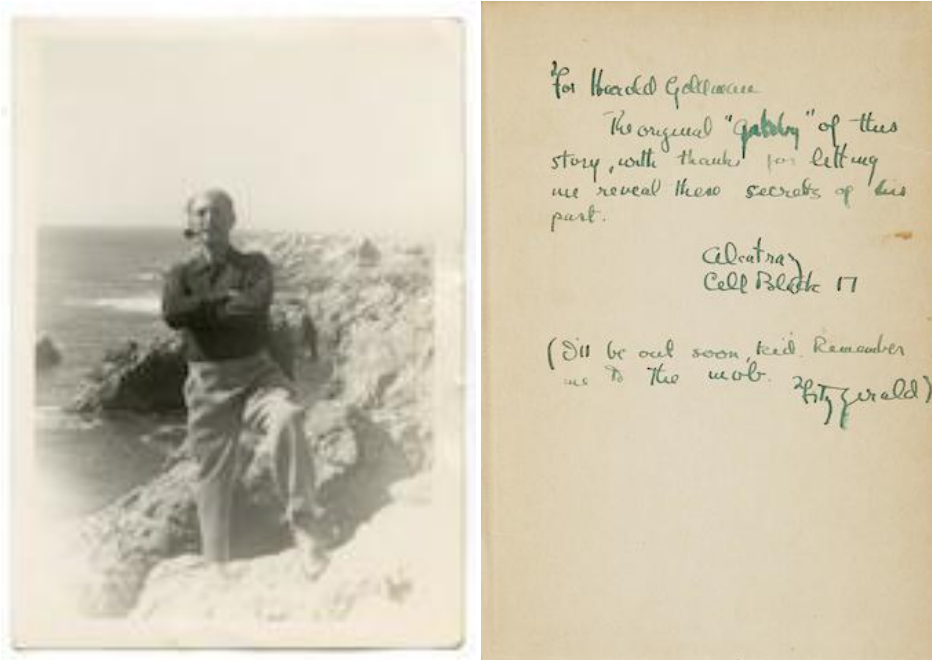 For Harold Goldman
The original "Gatsby" of this
story, with thanks for letting
me reveal these secrets of his
past.
Alcatraz
Cell Block 17
(I'll be out soon, kid. Remember
me to the mob.
Fitzgerald)